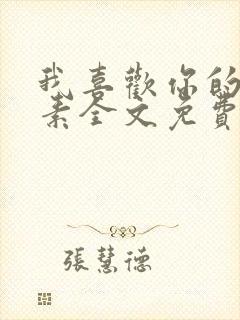 我喜歡你的
素全文免費
張慧德